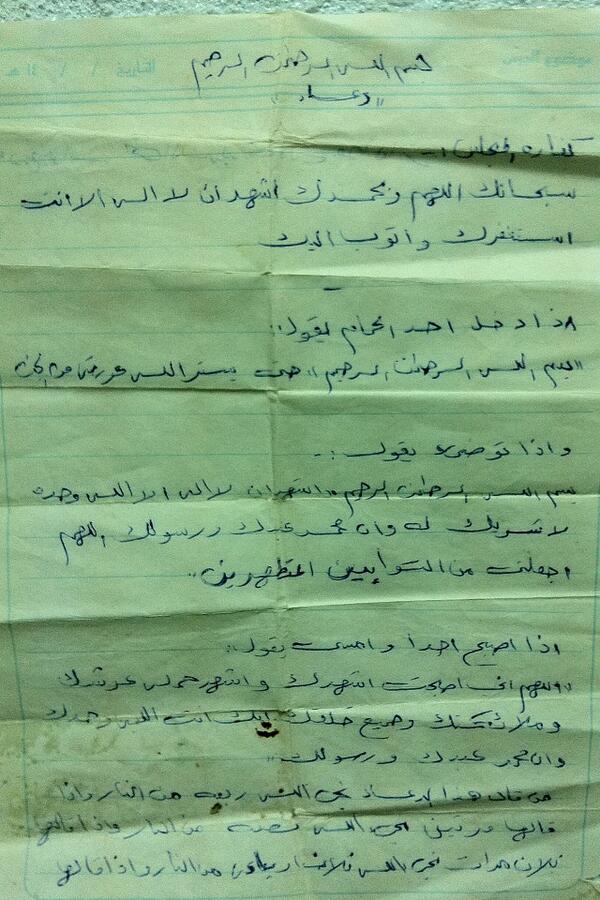 بسم الله الرحمن الرحيم
"دعاء"
كفارة المجلس :-
سبحانك اللهم وبحمدك اشهد ان لا اله الا انت
استغفرك واتوب اليك
اذا دخل احد الحمام يقول:
"بسم الله الرحمن الرحيم" حتى يستر الله عورته من الجن
واذا توضىء يقول :-
بسم الله الرحمن الرحيم "اشهد ان لا اله الا الله وحده
لا شريك له وان محمد عبدك ورسولك اللهم
اجعلني من التوابين المتطهرين"
اذا اصبح احداً وامسى يقول"
"اللهم اني اصبحت اشهدك واشهد حملة عرشك
وملائكتك وجميع خلقك انك انت الله وحدك
وان محمد عبدك ورسولك"
من قال هذا الدعاء نجى الله ربعه من النار واذا
قالها مرتين نجى الله نصفه من النار واذا قالها
ثلاث مرات نجى الله ثلاث ارباعه من النار واذا قالها